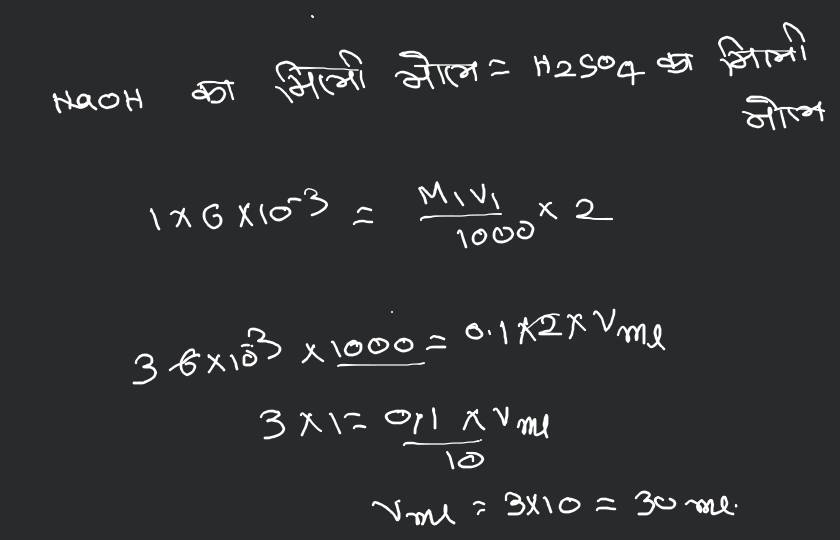 NaOH का मिली मोल = H2SO4 का मिली
मोल
1 x 6 x 10-3 = M1V1/1000 x 2
3 6 x 10-3 x 1000 = 0.1 x 2 x Vml
3 x 1 = 0,1/10 x Vml
Vml = 3x10 = 30 ml.